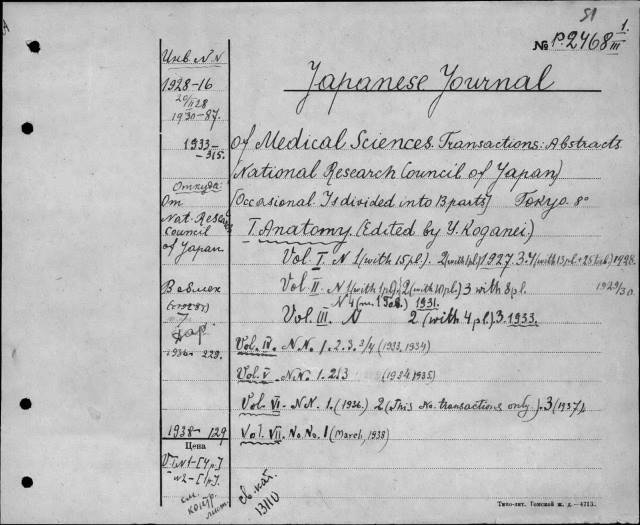 51
1.
№ p.2468 III
Инв. N.N
1928-16
20/II 28
1930-87.
1933-
-315.
Откуда:
От
Nat. Resear
Council
of Japan
В обмен
дар.
1936- 229.
1938-129
Цена
V. I N1-[4 p.]
" N2-[1 p.]
см.
контр.
лист.
Japanese Journal
of Medical Sciences. Transactions: Abstracts
National Research Council of Japan]
[Occasional. Is divided into 13 parts] Tokyo. 8°
I. Anatomy. (Edited by Y. Koganei.)
Vol. I. N 1 (with 15 pl.). 2 (with 1 pl.) 1927. 3. 4 (with 13 pl. + 25 tab.) 1928.
Vol. II. N 1 (with 1 pl.), 2 (with 10 pl.) 3 with 8 pl. 1929/30
N 4 1931.
Vol. III. N 2 (with 4 pl.) 3. 1933.
Vol. IV. N.N. 1. 2. 3. 3/4 (1933, 1934)
Vol. V. N.N. 1. 2/3 (1934, 1935)
Vol. VI. N.N. 1. (1936.) 2 (This No. transactions only). 3 (1937).
Vol. VII. No. No. 1 (March, 1938)
св. кат.
13/10
Типо-лит. Томской ж. д.—4713.